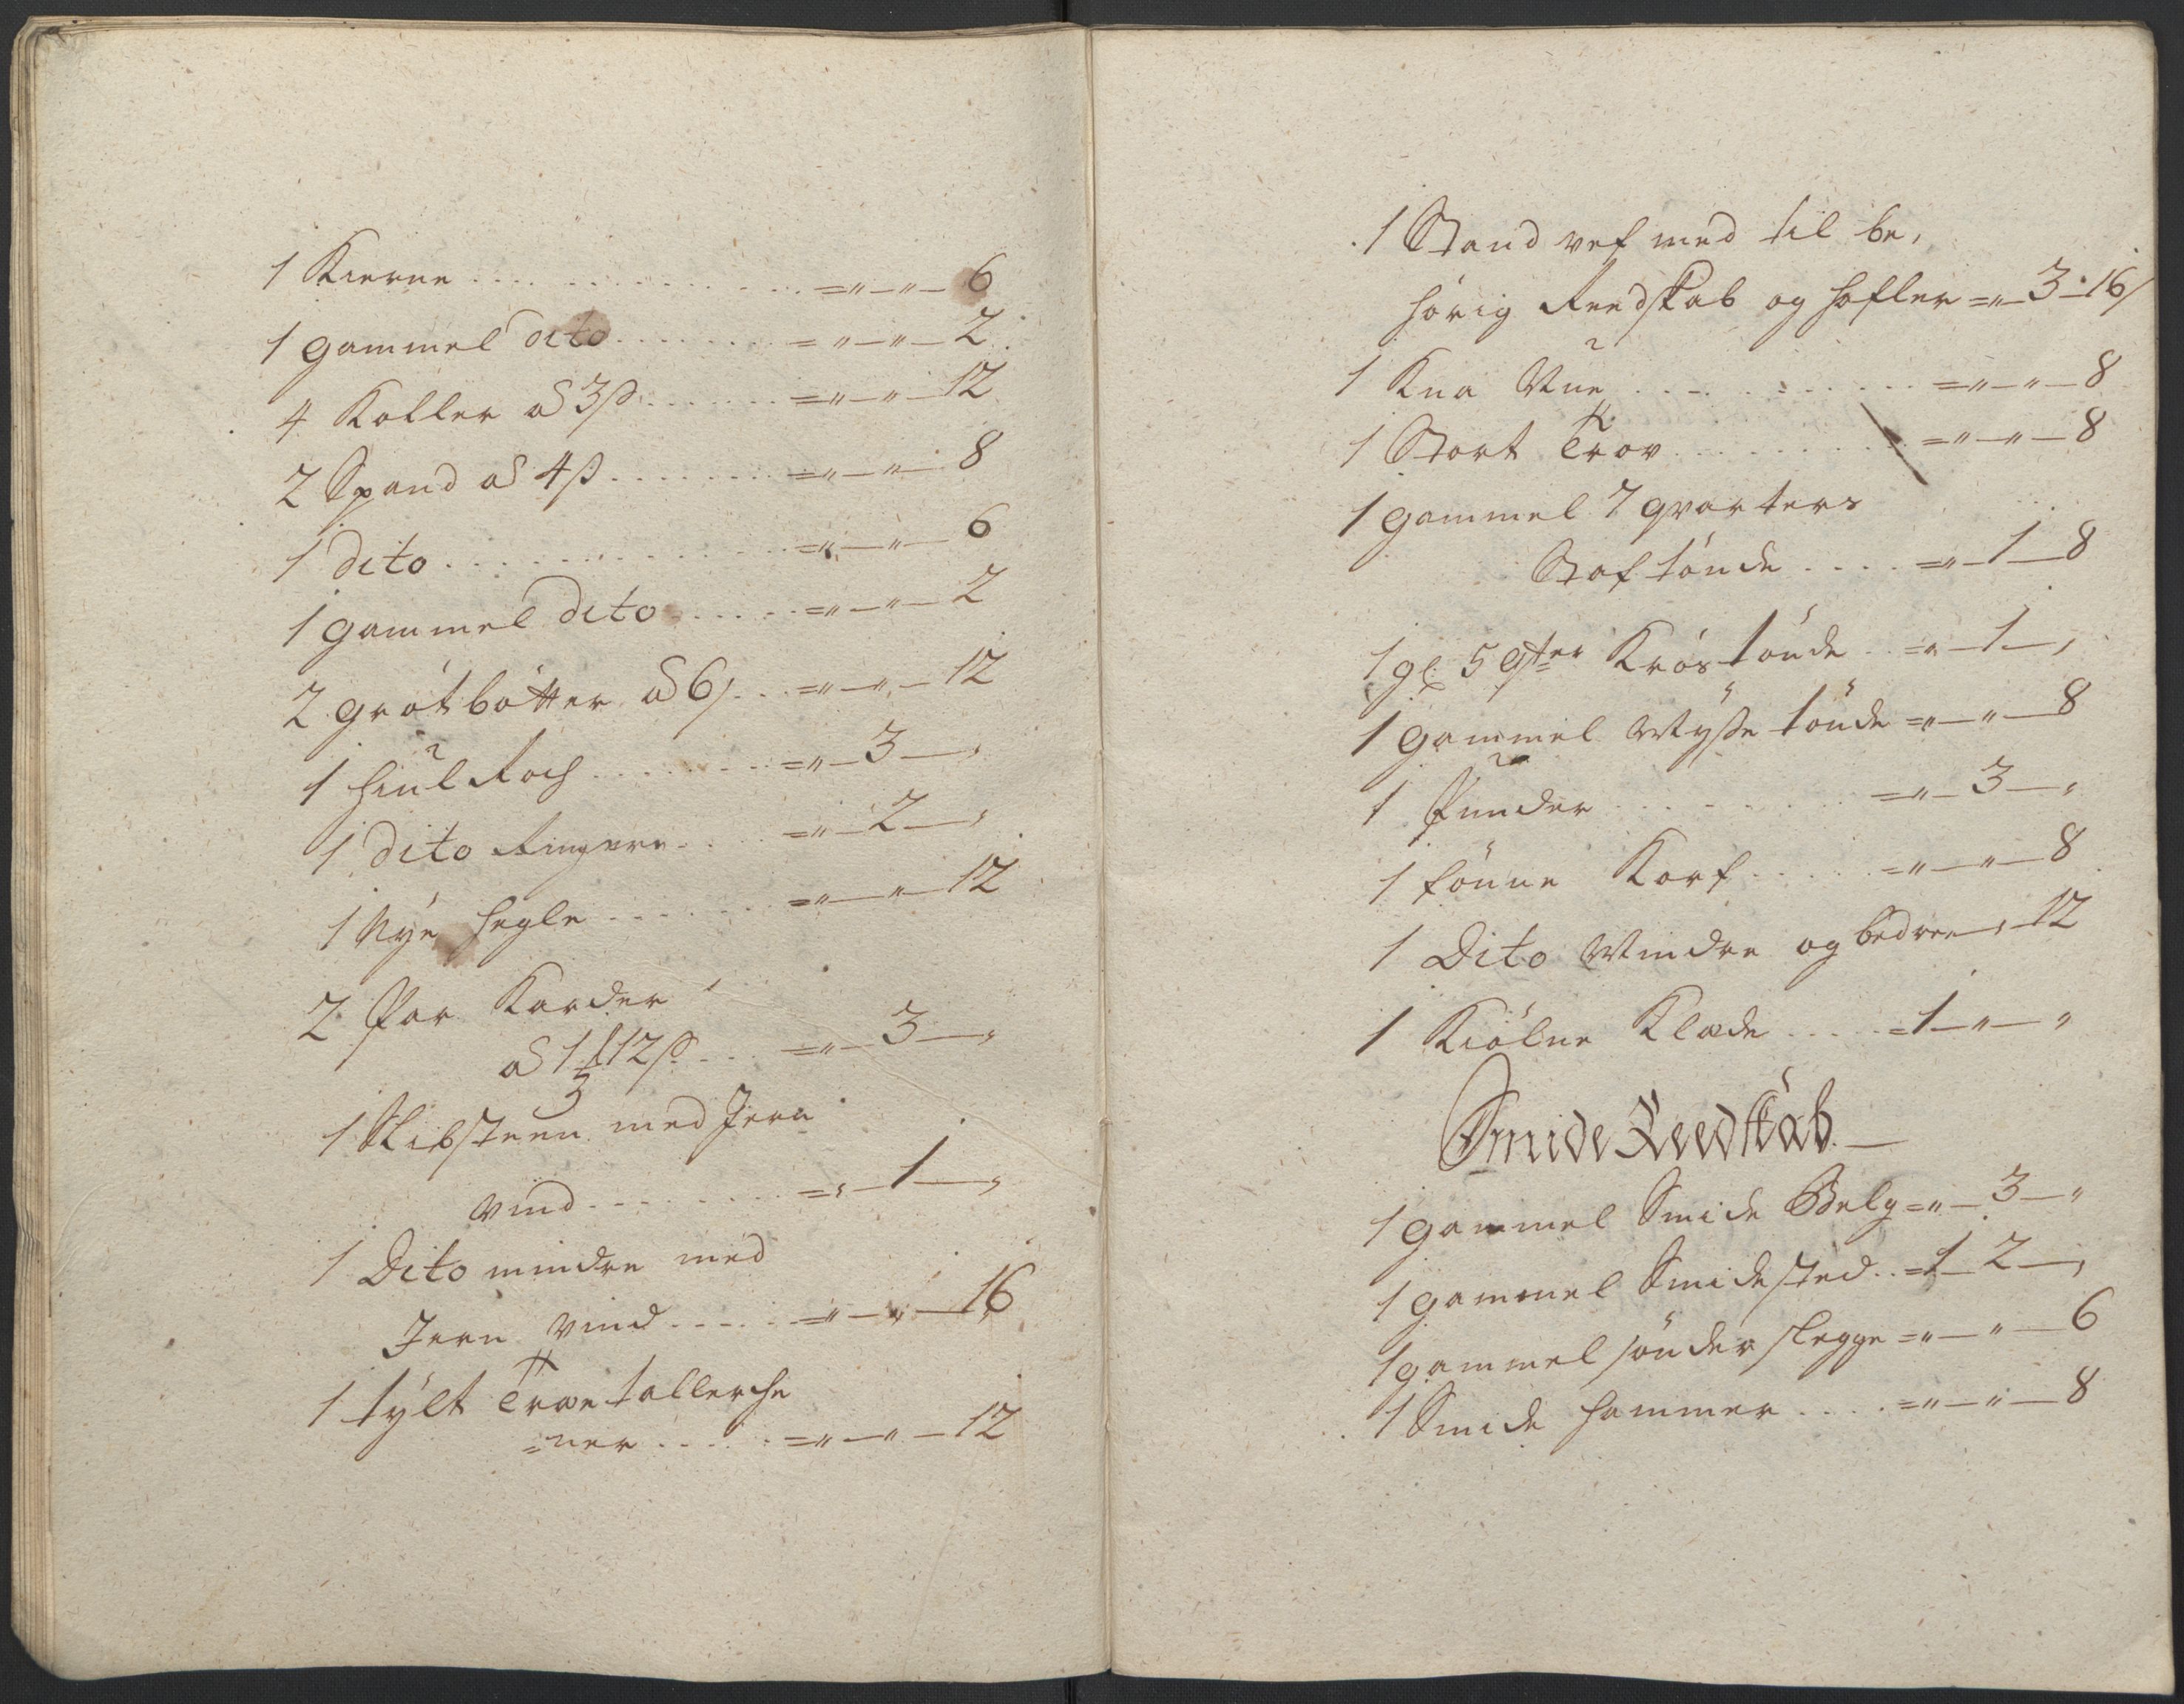 1 Kierne . . . . . . . . =„—„—6
1 gammel dito . . . . . . =„—„—2
4 Koller a 3 ß . . . . . =„—„—12
2 Spand a 4 ß . . . . . =„—„—8
1 dito . . . . . . . . =„—„—6
1 gammel dito . . . . . =„—„—2
2 grøtbøtter a 6 ß . . . =„—„—12
1 hiul Roch . . . . . . =„—3—„
1 dito Ringere . . . =„—2—„
1 Nye hegle . . . . . . =„—„—12
2 Par Karder
a 1 12 ß . . . =„—3—„
1 Slibsteen med Jern
vind . . . . . . . =„—1—„
1 Dito mindre med
Jern vind . . . . . =„—„—16
1 tylt Træe tallerche
=ner . . . . . =„—„—12
1 Stand vef med til be,
hørig Reedskab og hofler =„—3—16
1 Kna . . . . . . =„—„—8
1 Stort Trov . . . . . . =„—„—8
1 gammel 7 qvarters
Staftønde . . . . =„—1—8
1 gl: 5 qter Krøstønde . . =„—1—„
1 gammel Myse tønde =„—„—8
1 Punder . . . . . . =„—3—„
1 Korf . . . . . =„—„—8
1 Dito Mindre og bedre =„—„—12
1 Kiølne Klæde . . . . =1—„—„
Smide Reedskab.—
1 gammel Smide Belg =„—3—„
1 gammel Smidested . . =1—2—„
1 gammel sønder slegge =„—„—6
1 Smide hammer . . . . =„—„—8